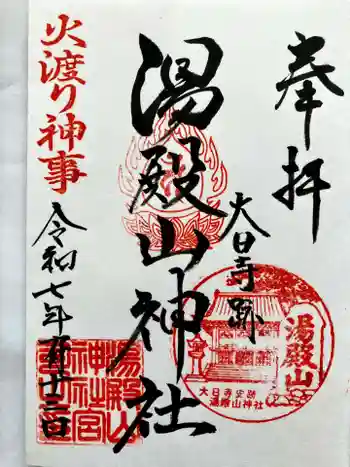 奉拝
大日寺跡
湯殿山神社
火渡り神事
令和七年五月十三日
湯殿山
大日寺史跡
湯殿山神社
湯殿山
神社宮